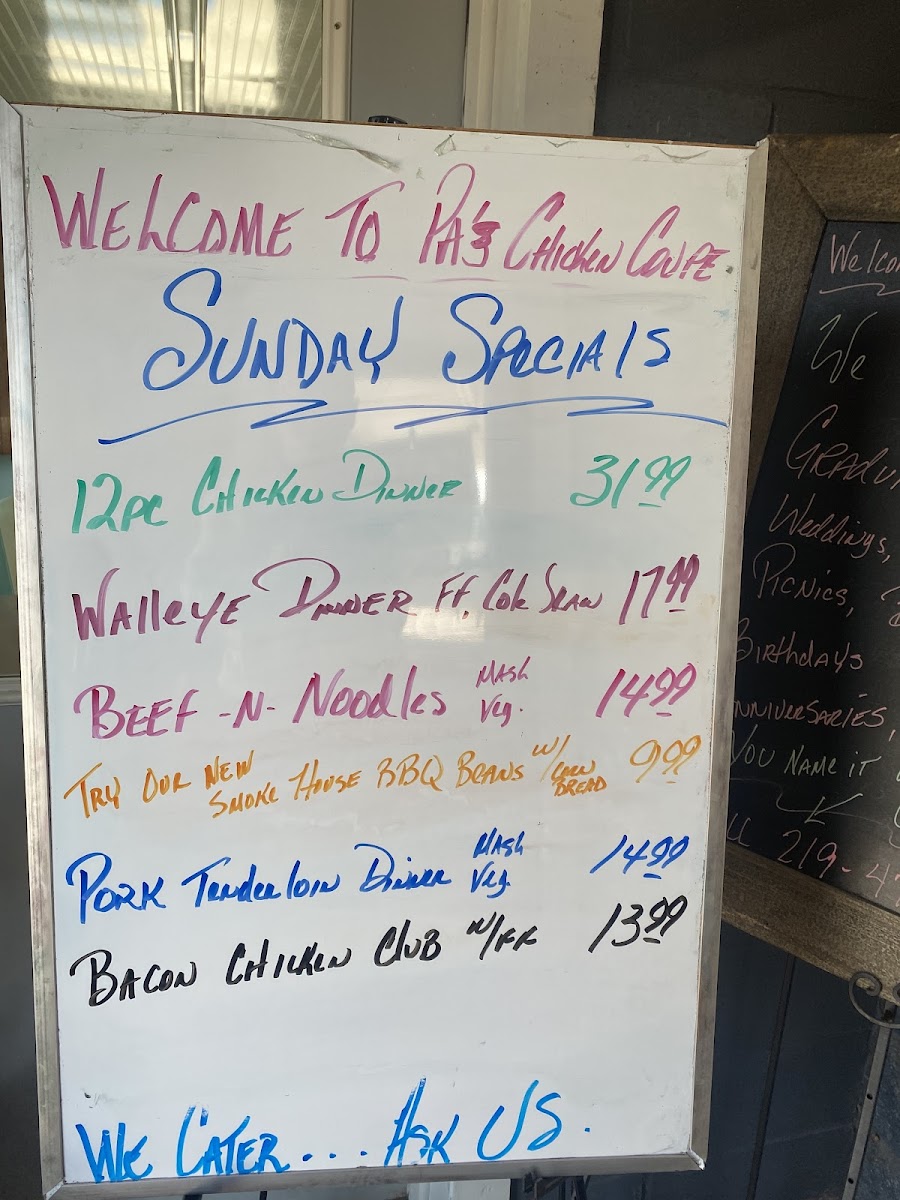 WELCOME TO PA'S CHICKEN COUPE
SUNDAY SPECIALS
12PC CHICKEN DINNER 31.99
WALLEYE DINNER FF, Cole Slaw 17.99
BEEF -N- NOODLES MASH Veg. 14.99
TRY OUR NEW SMOKE HOUSE BBQ BEANS W/ CORN BREAD 9.99
PORK TENDERLOIN DINNER MASH Veg. 14.99
BACON CHICKEN CLUB W/FF 13.99
WE CATER.... ASK US.
We
Weddings,
PICNICS,
Birthdays
YOU NAME IT
219-4